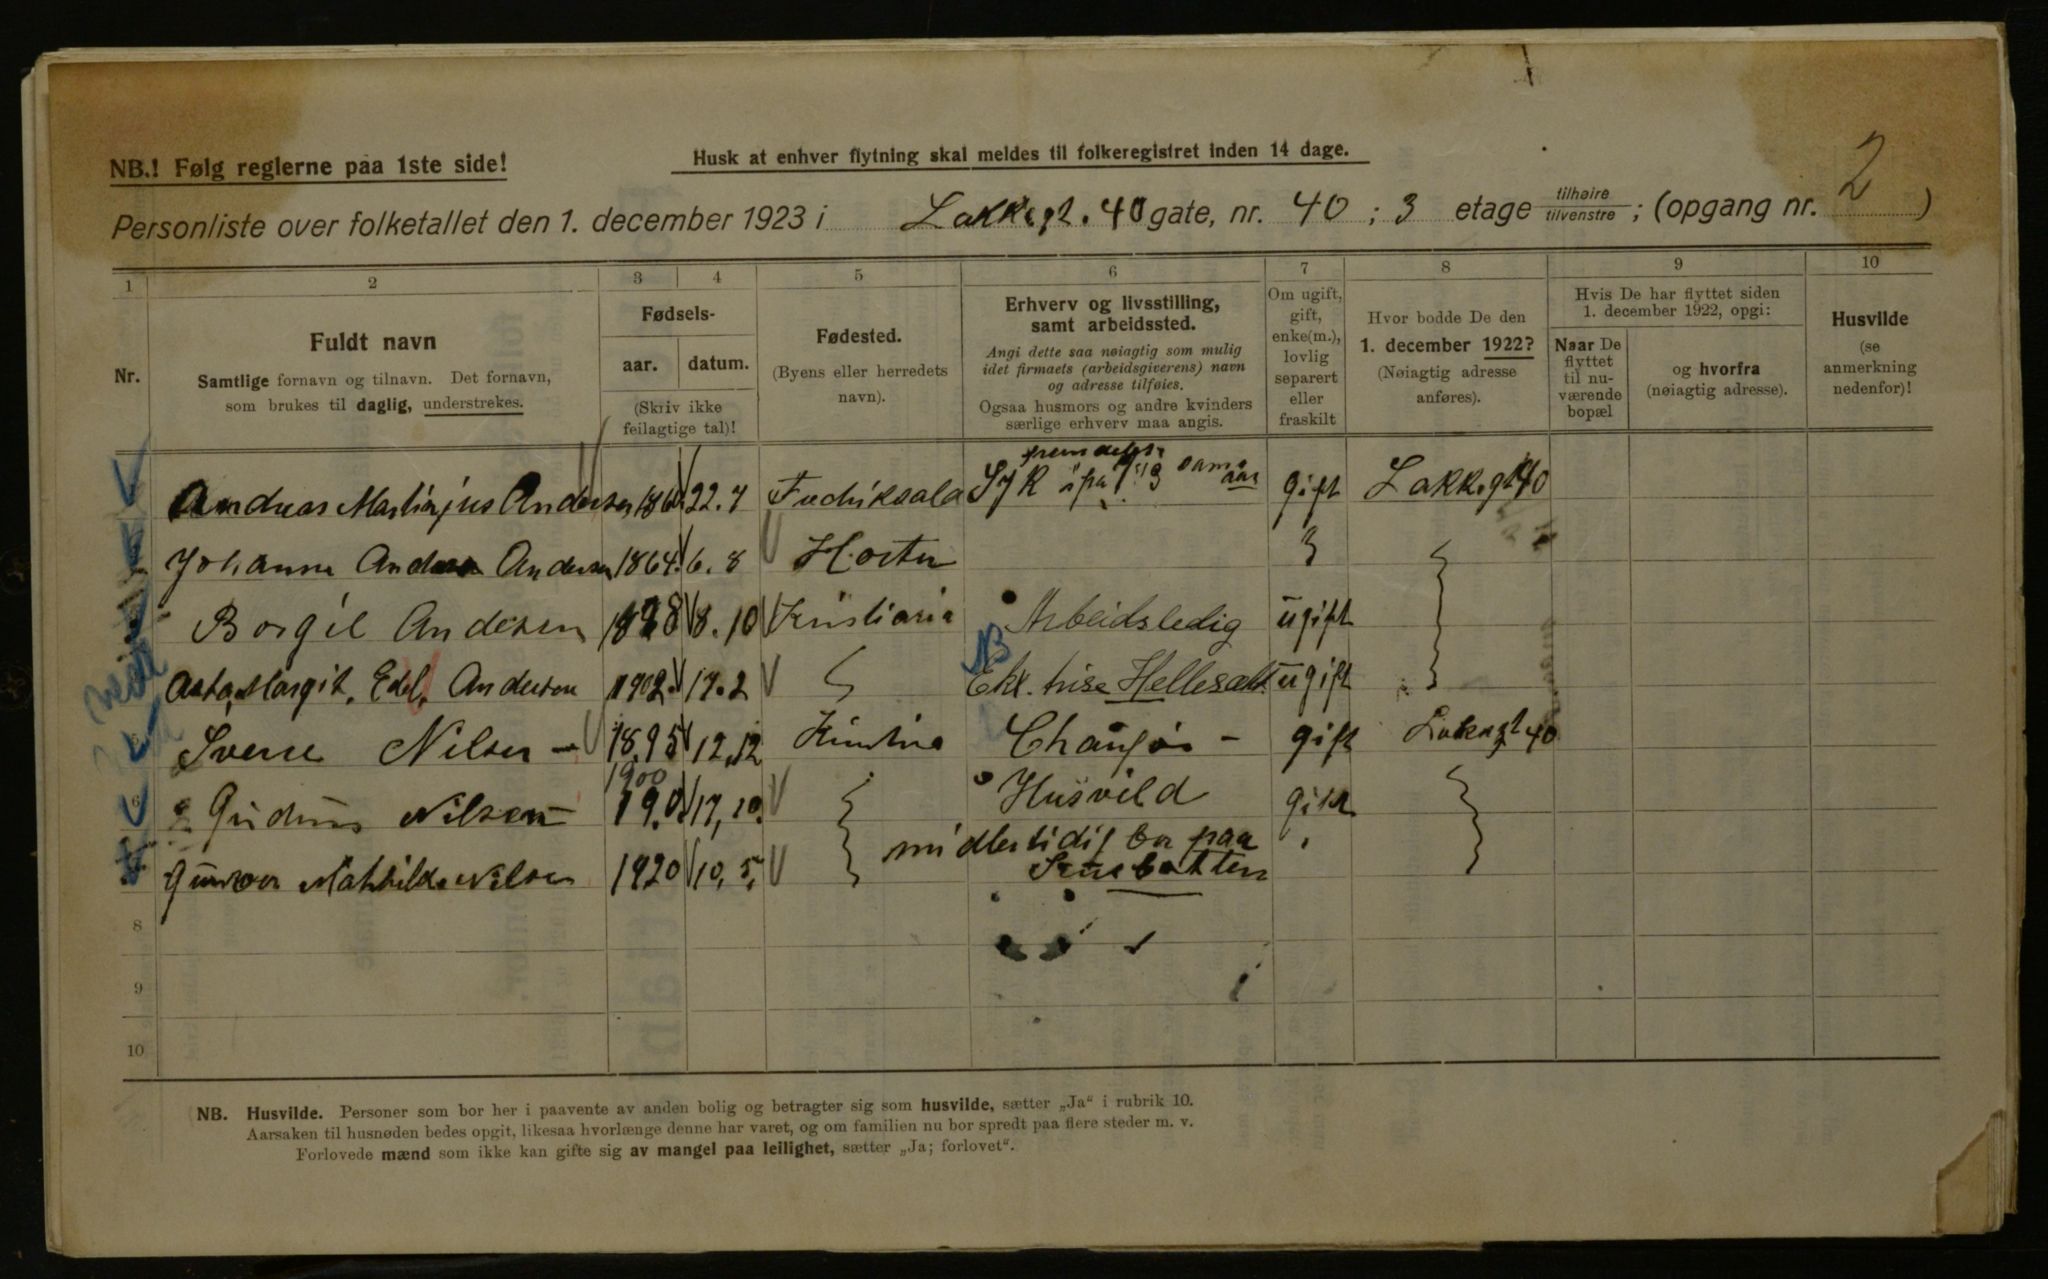 NB.! Følg reglerne paa 1ste side!
Husk at enhver flytning skal meldes til folkeregistret inden 14 dage.
2
Personliste over folketallet den 1. december 1923 i Lakkegt. 40 gate, nr. 40 ; 3 etage tilhøire tilvenstre ; (opgang nr. )
1 2 3 4 5 6 7 8 9 10
Nr.
Fuldt navn
Samtlige fornavn og tilnavn. Det fornavn,
som brukes til daglig, understrekes.
Fødsels-
aar. datum.
(Skriv ikke
feilagtige tal)!
Fødested.
(Byens eller herredets
navn).
Erhverv og livsstilling,
samt arbeidssted.
Angi dette saa nøiagtig som mulig
idet firmaets (arbeidsgiverens) navn
og adresse tilføies.
Ogsaa husmors og andre kvinders
særlige erhverv maa angis.
Om ugift,
gift,
enke(m.),
lovlig
separert
eller
fraskilt
Hvor bodde De den
1. december 1922?
(Nøiagtig adresse
anføres).
Hvis De har flyttet siden
1. december 1922, opgi:
Naar De
flyttet
til nu-
værende
bopæl
og hvorfra
(nøiagtig adresse).
Husvilde
(se
anmerkning
nedenfor)!
Andreas Martinius Andersen 22.7 Fredriksald Syk gift Lakkegt 40
Johanne Andersen 1864. 6.8 Horten
Borgil Andersen 8.10 Kristiania Arbeidsledig ugift
NB
Asta Margit, Edel, Andersen 1902. 17.2 Hellesæt ugift
Sverre Nilsen 1895 12,12 Chauför gift Lakegt 40
1900
6 Gudrun Nilsen 190. 17,10. Husvild gift
midlertidig bor paa
Gunvor Mathilde Nilsen 1920 10,5,
8
9
10
NB. Husvilde. Personer som bor her i paavente av anden bolig og betragter sig som husvilde, sætter „Ja“ i rubrik 10.
Aarsaken til husnøden bedes opgit, likesaa hvorlænge denne har varet, og om familien nu bor spredt paa flere steder m. v.
Forlovede mænd som ikke kan gifte sig av mangel paa leilighet, sætter „Ja; forlovet“.